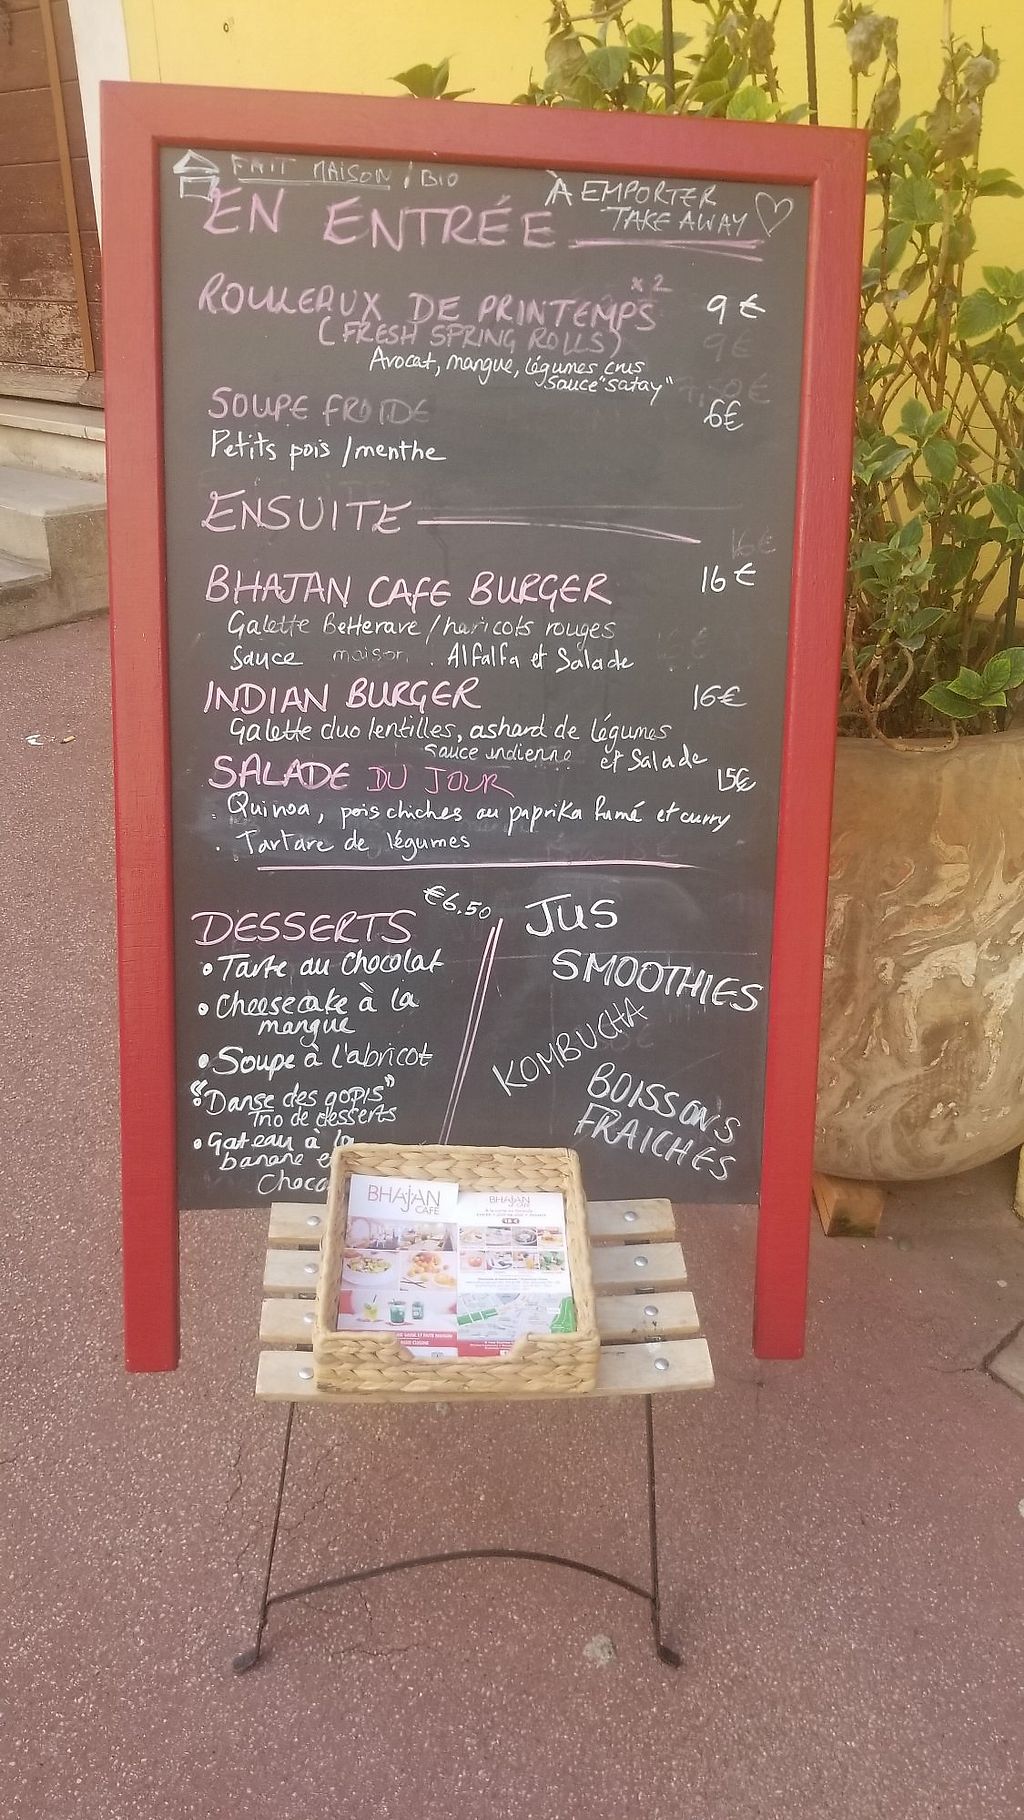 FAIT MAISON / BIO
À EMPORTER
TAKE AWAY
EN ENTRÉE
ROULEAUX DE PRINTEMPS x2 9€
(FRESH SPRING ROLLS)
Avocat, mangue, légumes crus
Sauce "satay"
SOUPE FROIDE 6€
Petits pois / menthe
ENSUITE
BHAJAN CAFE BURGER 16€
Galette Betterave / haricots rouges
Sauce maison. Alfalfa et Salade
INDIAN BURGER 16€
Galette duo lentilles, ashard de légumes
sauce indienne et Salade
SALADE DU JOUR 15€
. Quinoa, pois chiches au paprika fumé et curry
. Tartare de légumes
DESSERTS €6.50
• Tarte au Chocolat
• Cheesecake à la
mangue
• Soupe à l'abricot
• "Danse des gopis"
Trio de desserts
• Gateau à la
banane e
Choco
JUS
SMOOTHIES
KOMBUCHA
BOISSONS
FRAICHES
BHAJAN
CAFÉ
BHAJAN
CAFÉ